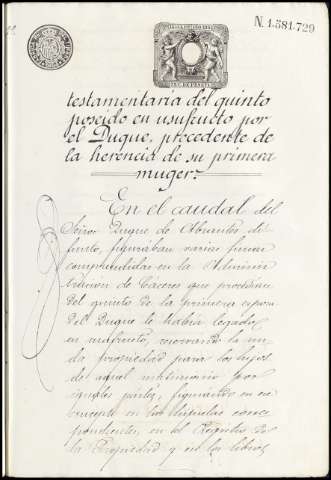 N. 1.581.729
testamentaria del quinto
poseido en usufructo por
el Duque, procedente de
la herencia de su primera
muger.
En el caudal del
Señor Duque de Abrantes di-
funto, figuraban varias fincas
comprendidas en la Adminis
tracion de Cáceres que procedian
del quinto de la primera esposa
del Duque le habia legado
en usufructo, reservando la nu
da propiedad para los hijos
de aquel matrimonio por
iguales partes, figurando en
concepto en los
pondientes, en el Registro de
la Propiedad y en los libros